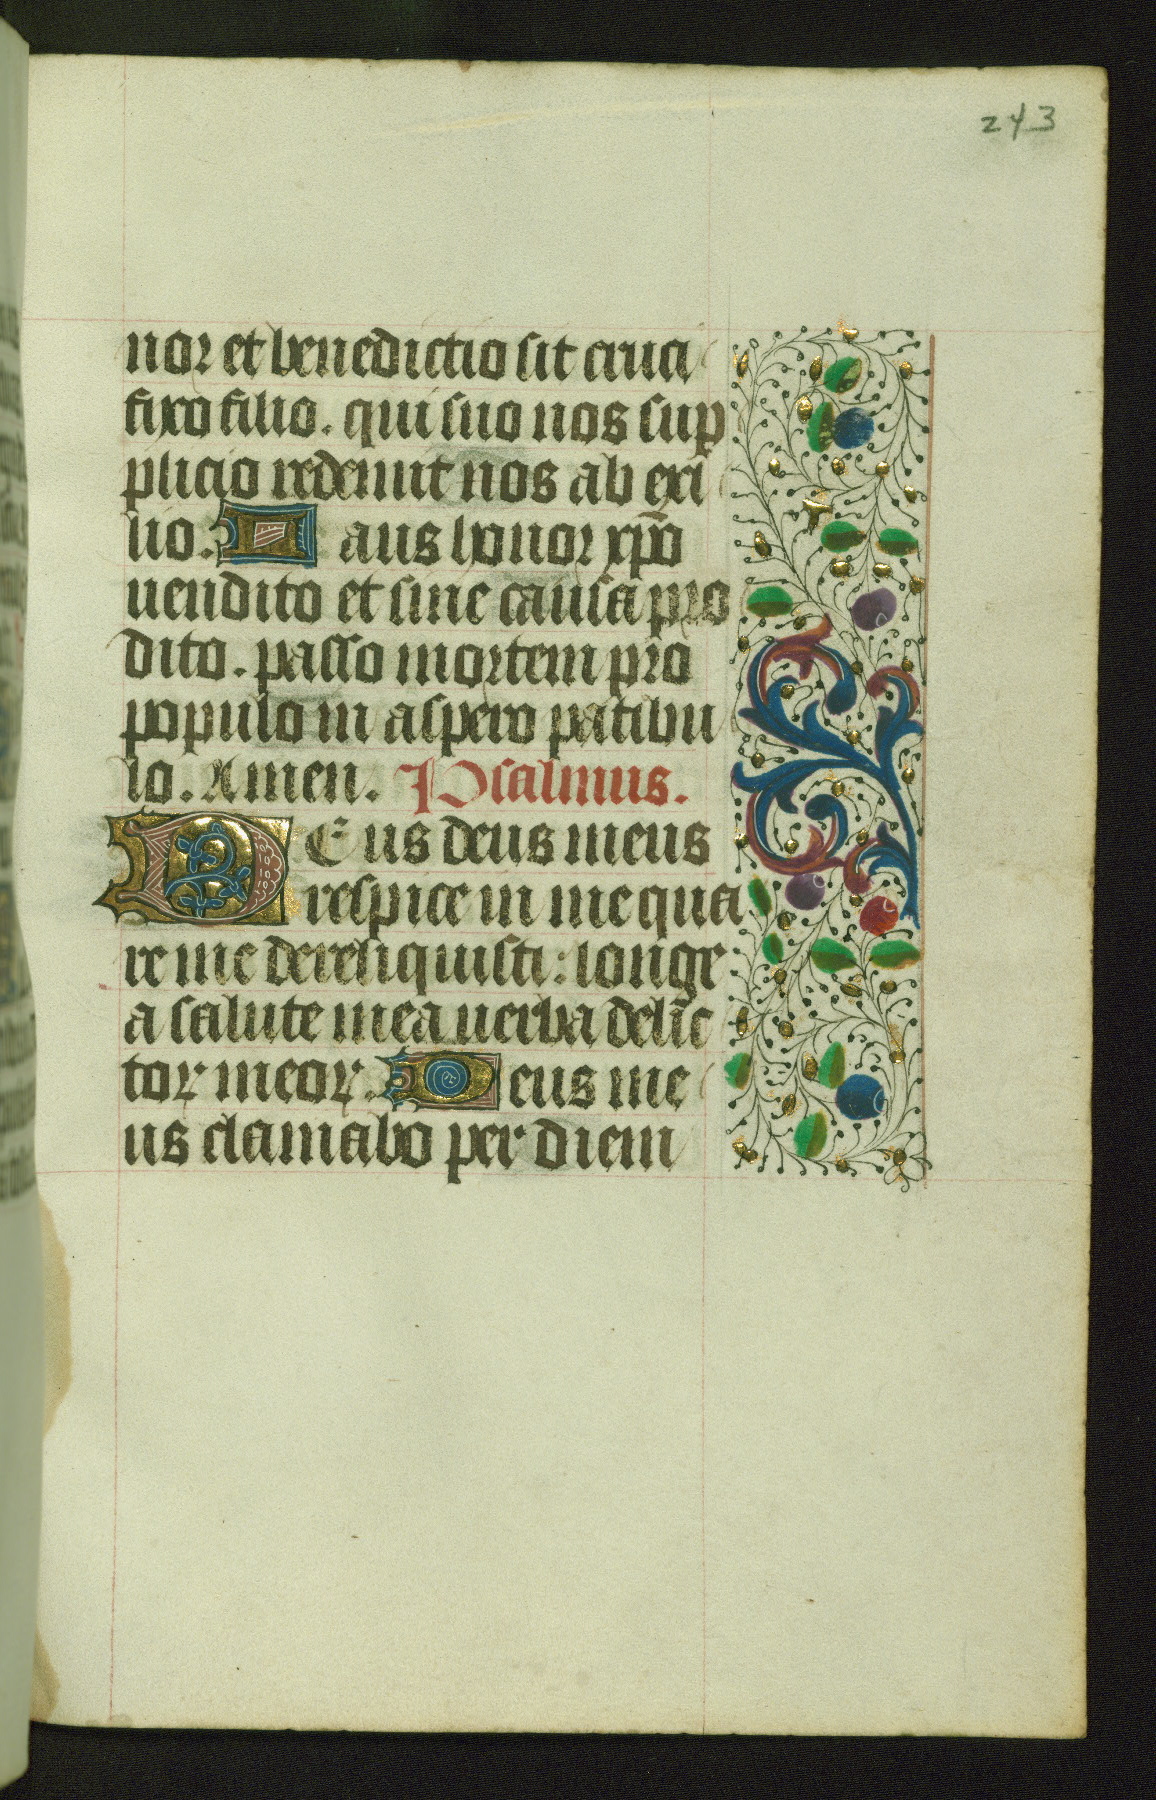 243
nor et benedictio sit cruci
fixo filio. qui suo nos sup
plicio redemit nos ab exi
lio. Laus honor xp̄o
vendito et sine causa pro
dito. passo mortem pro
populo in aspero patibu
lo. Amen. Psalmus.
DEus deus meus
respice in me qua
re me dereliquisti: longe
a salute mea verba delic
toꝝ meoꝝ. Deus me
us clamabo per diem